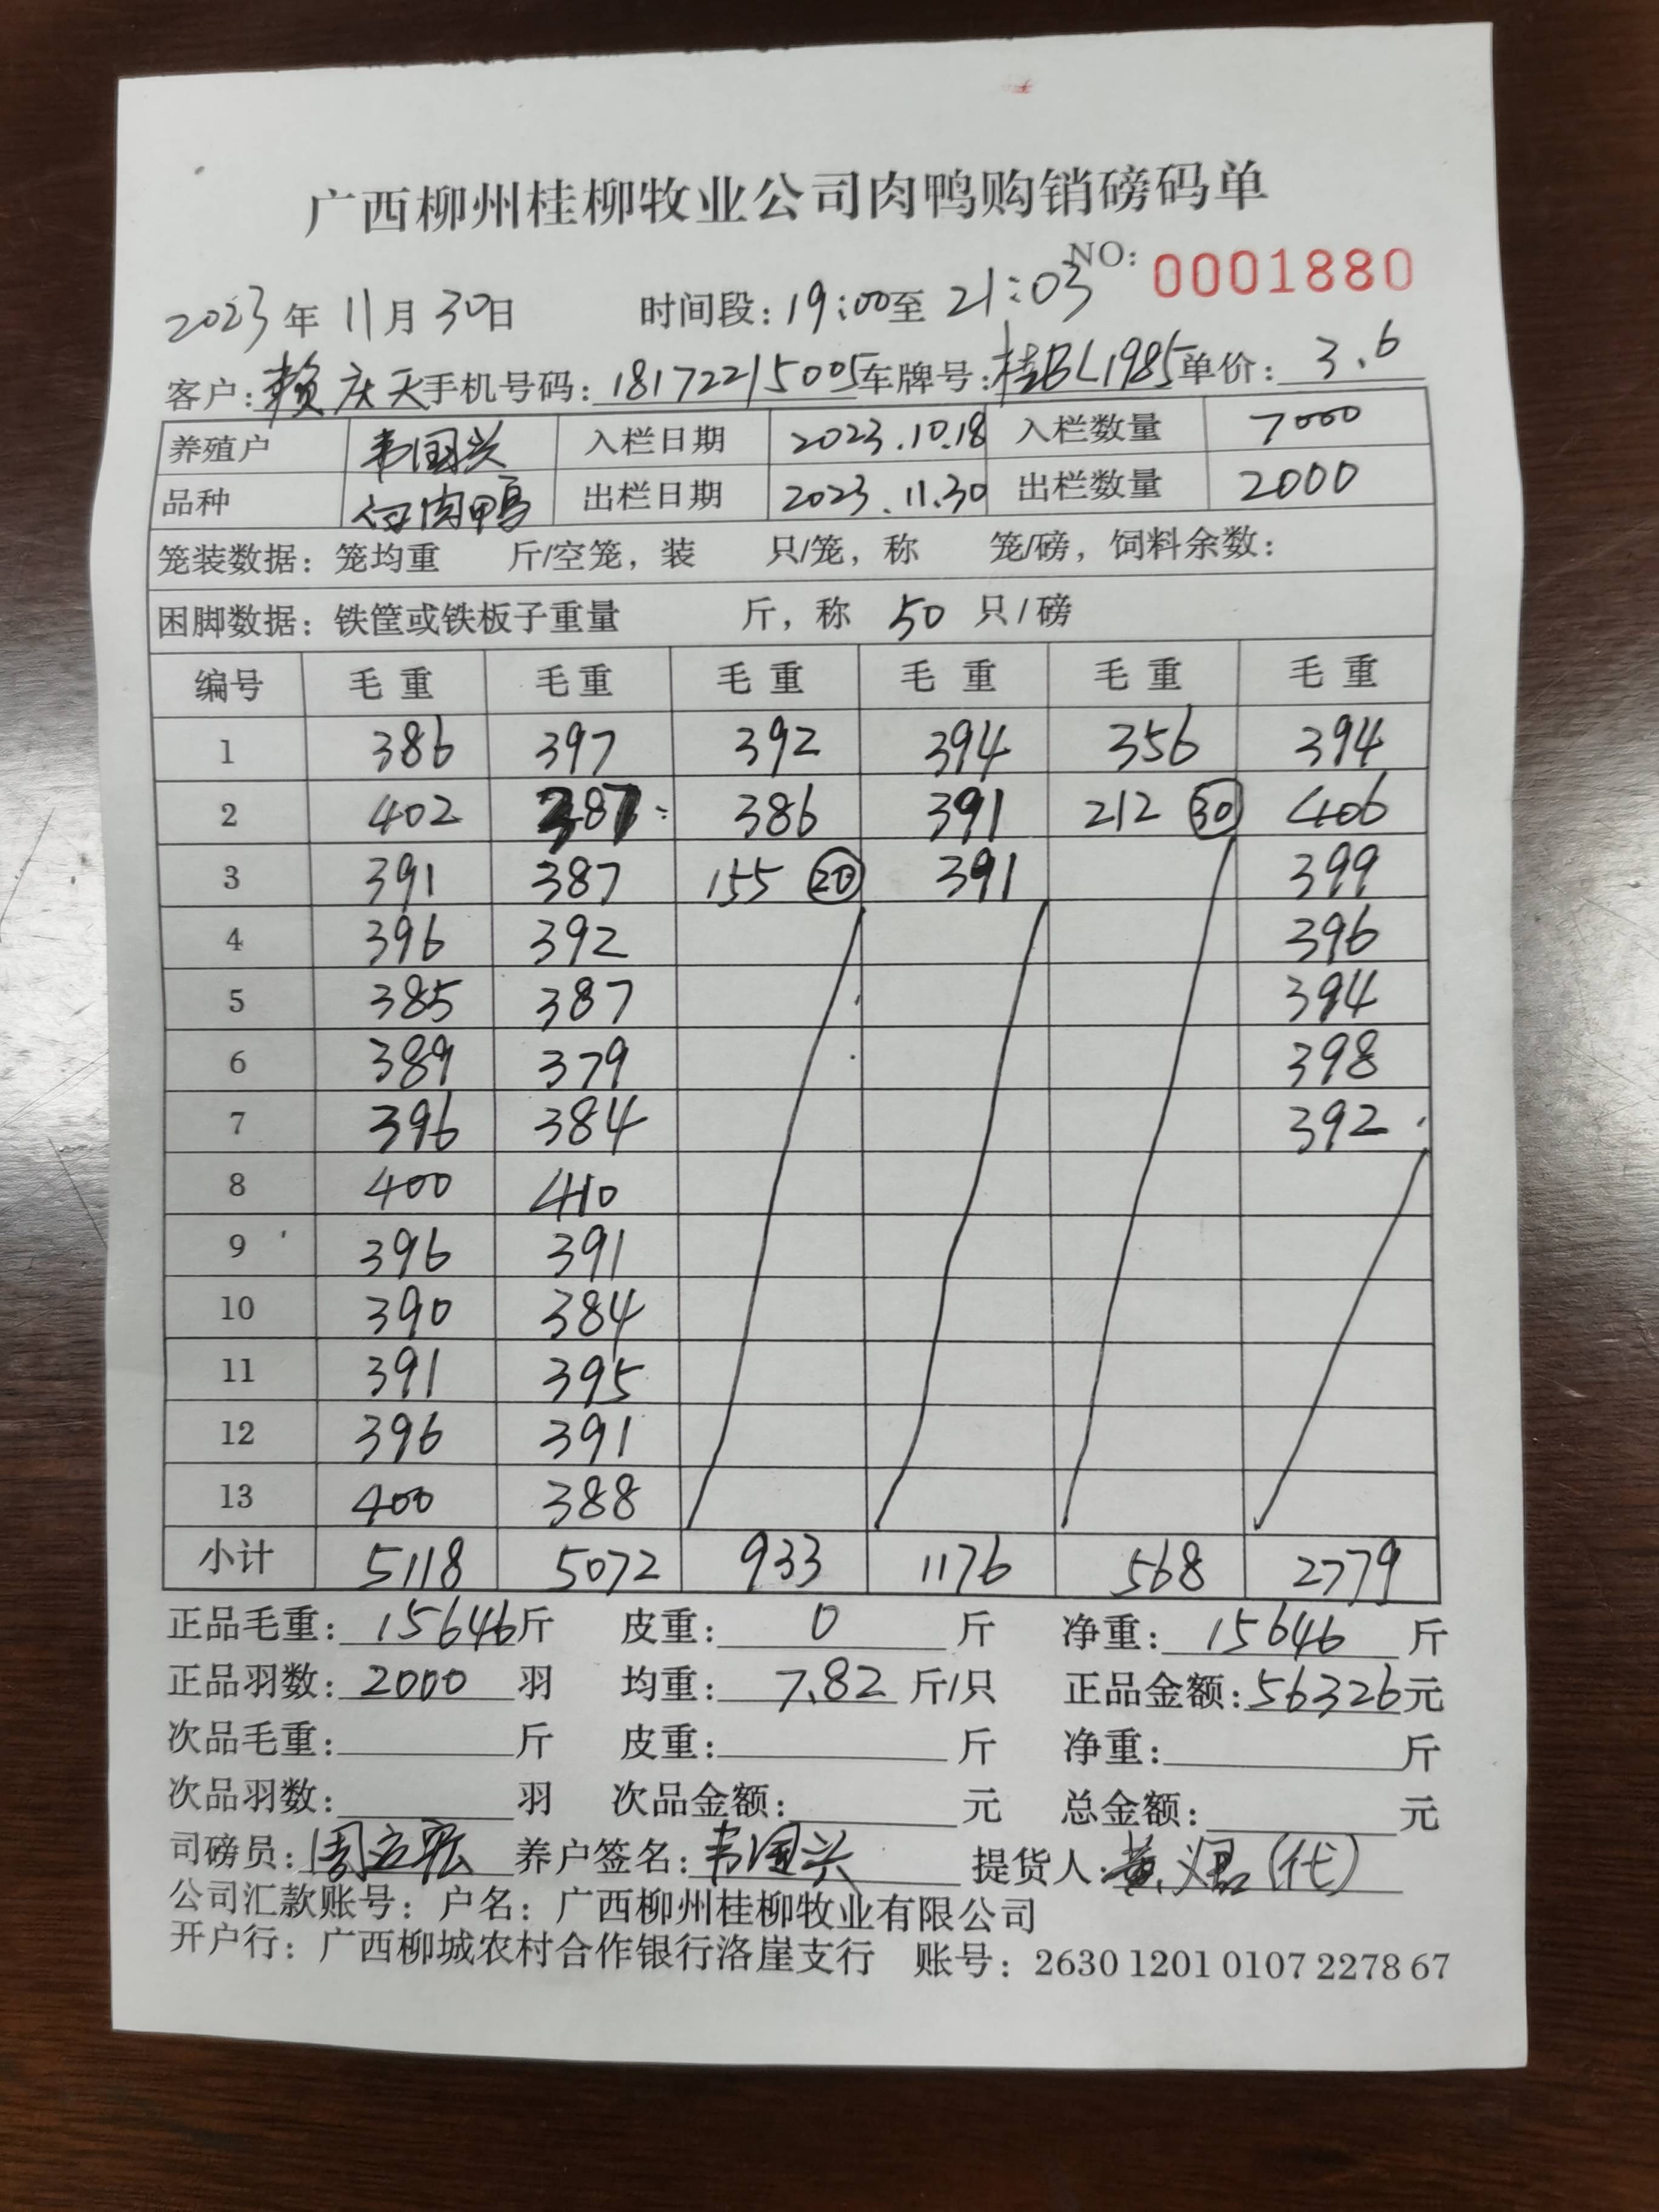 广西柳州桂柳牧业公司肉鸭购销磅码单
NO: 0001880
2023年 11月 30日 时间段：19:00至 21:03
客户：赖庆天 手机号码：18172215005 车牌号：桂BL1985 单价：3.6
养殖户 韦国兴 入栏日期 2023.10.18 入栏数量 7000
品种 白肉鸭 出栏日期 2023.11.30 出栏数量 2000
笼装数据：笼均重 斤/空笼，装 只/笼，称 笼/磅，饲料余数：
困脚数据：铁筐或铁板子重量 斤，称 50 只/磅
编号 毛重 毛重 毛重 毛重 毛重 毛重
1 386 397 392 394 356 394
2 402 387 386 391 212 30 406
3 391 387 155 20 391 399
4 396 392 396
5 385 387 394
6 389 379 398
7 396 384 392
8 400 410
9 396 391
10 390 384
11 391 395
12 396 391
13 400 388
小计 5118 5072 933 1176 568 2779
正品毛重：15646斤 皮重：0 斤 净重：15646 斤
正品羽数：2000 羽 均重：7.82 斤/只 正品金额：56326元
次品毛重： 斤 皮重： 斤 净重： 斤
次品羽数： 羽 次品金额： 元 总金额： 元
司磅员：周 养户签名：韦国兴 提货人：黄 (代)
公司汇款账号：户名：广西柳州桂柳牧业有限公司
开户行：广西柳城农村合作银行洛崖支行 账号：2630 1201 0107 2278 67